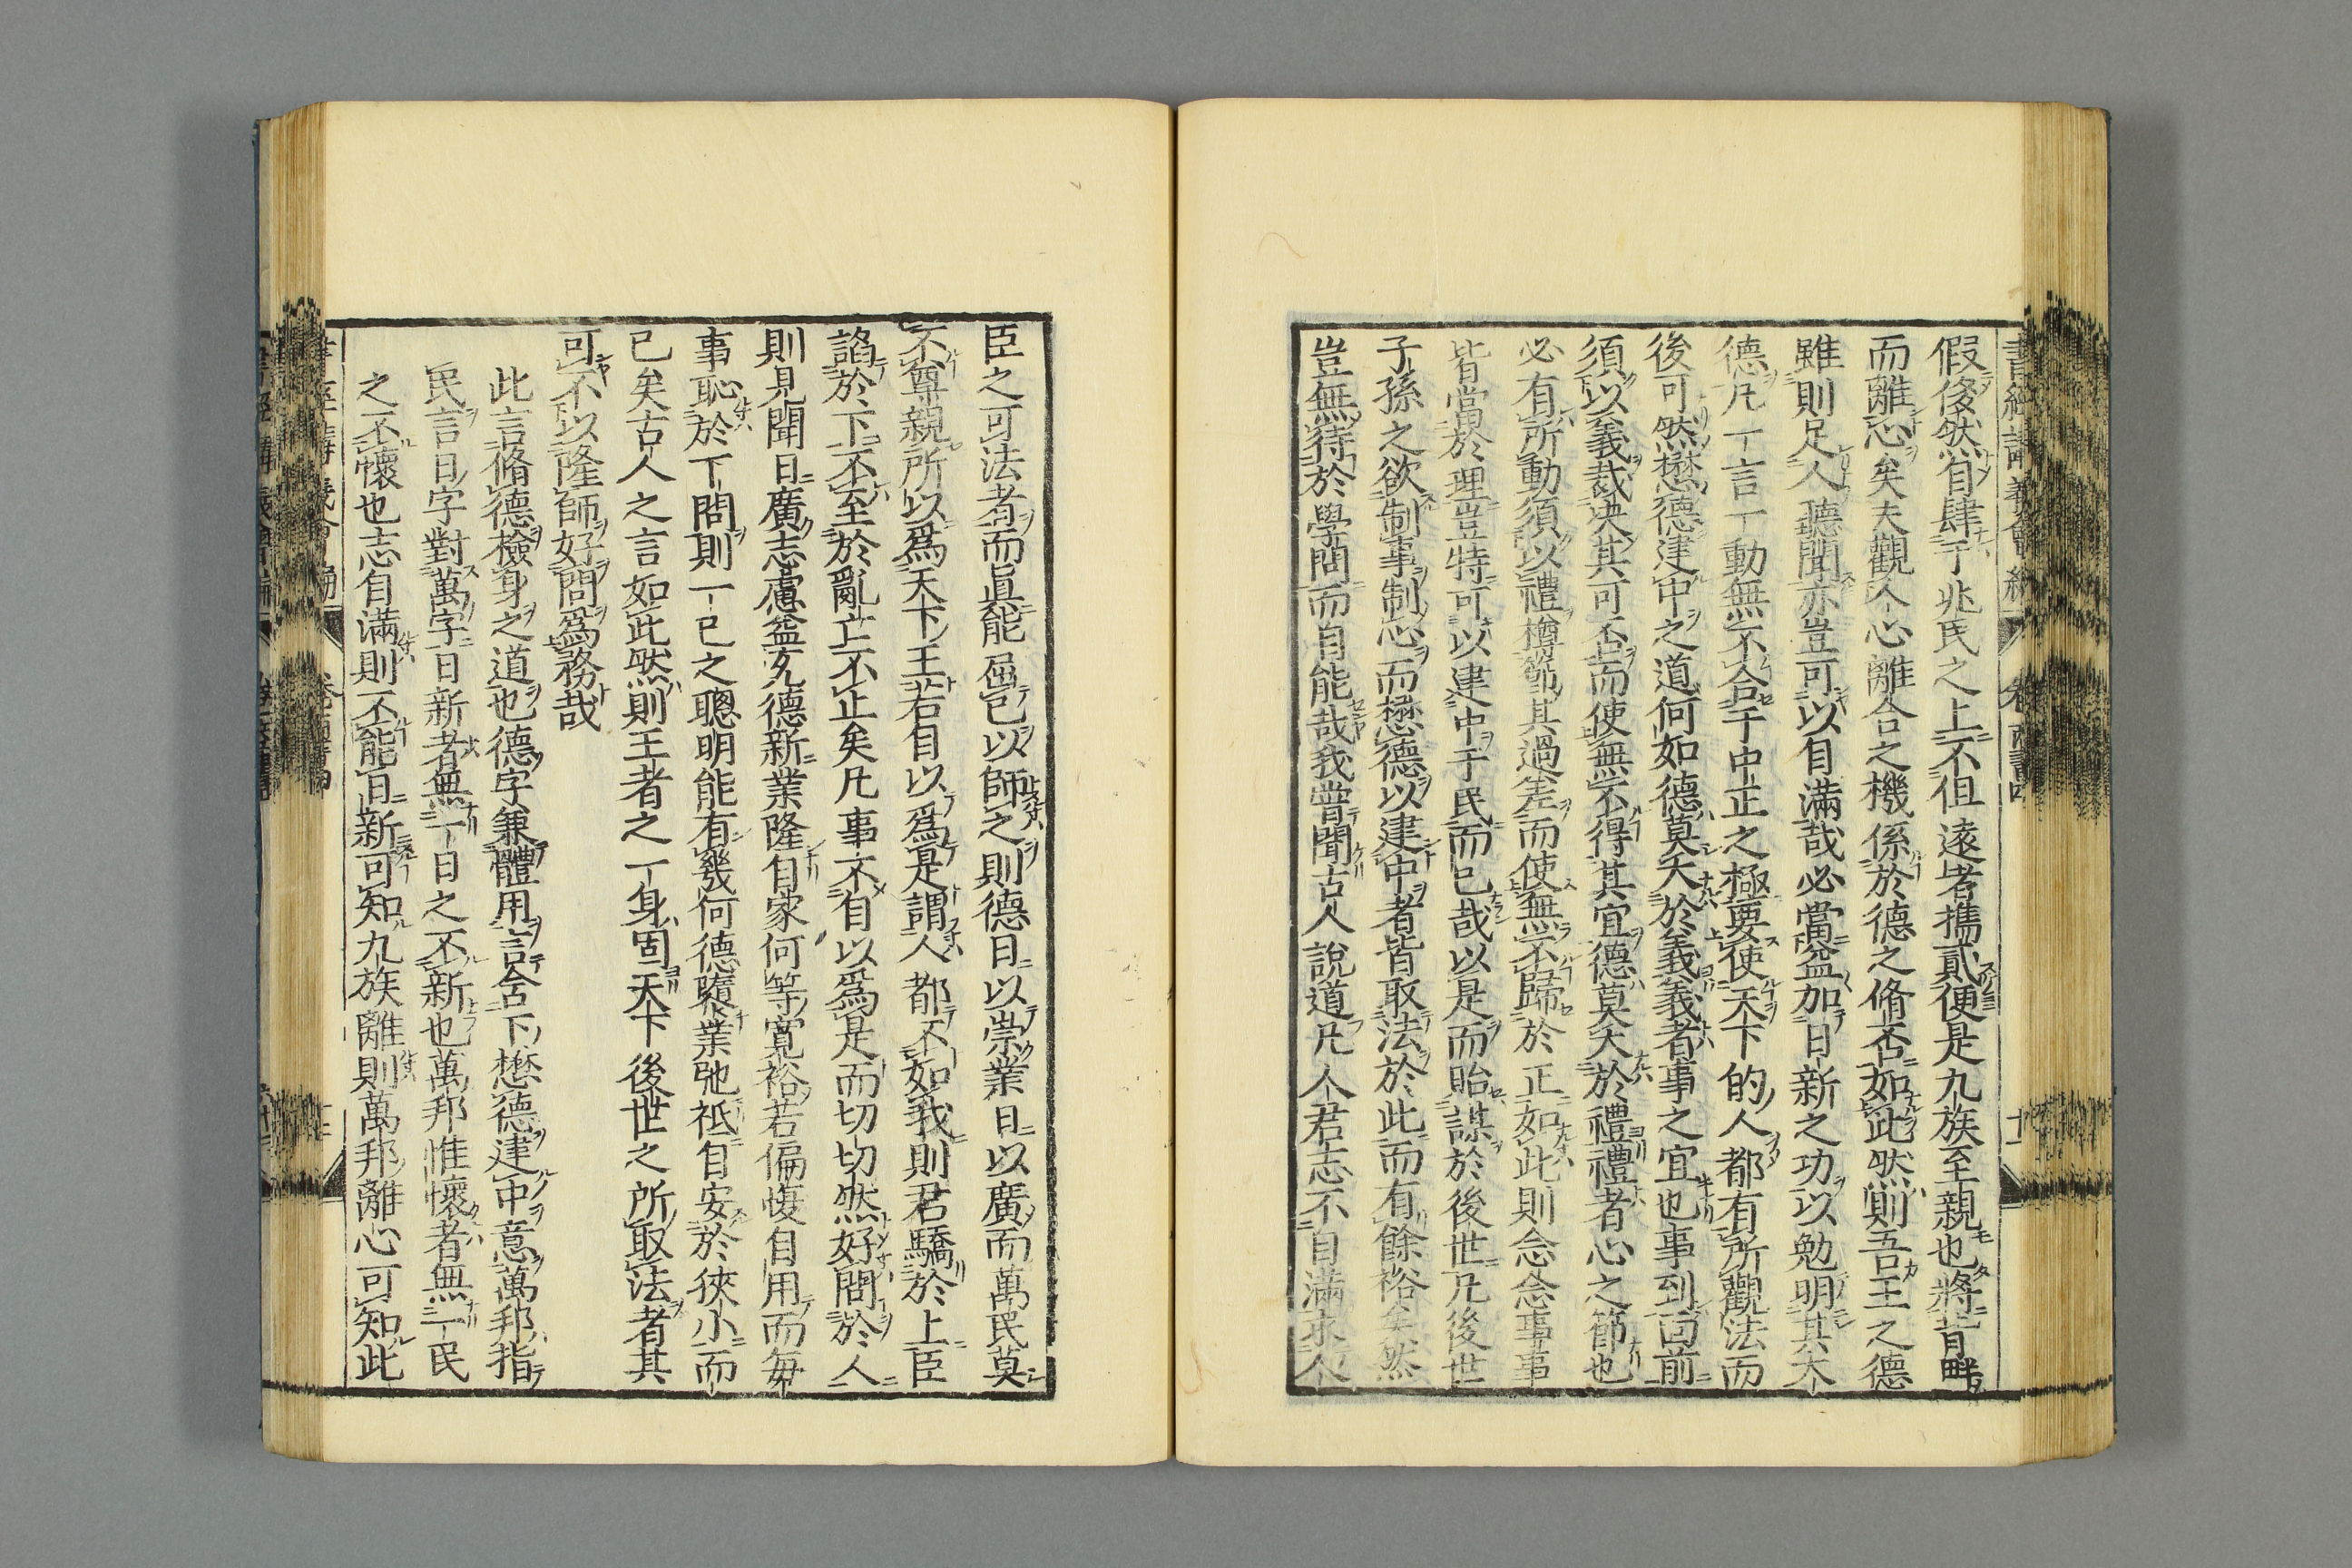 假侈然自肆于兆民之上不但遠者攜貳便是九族至親也將背畔
而離心矣夫觀人心離合之機係於德之脩否如此然則吾王之德
雖則足人聽聞亦豈可以自滿哉必當益加日新之功以勉明其大
德凡一言一動無不合于中正之極要使天下的人都有所觀法而
後可然懋德建中之道何如德莫大於義義者事之宜也事到面前
須以義裁决其可否而使無不得其宜德莫大於禮禮者心之節也
必有所動須以禮樽節其過差而使無不歸於正如此則念念事事
皆當於理豈特可以建中于民而已哉以是而貽謀於後世凡後世
子孫之欲制事制心而懋德以建中者皆取法於此而有餘裕矣然
豈無待於學問而自能哉我嘗聞古人說道凡人君志不自滿求人
臣之可法者而眞能屈己以師之則德日以崇業日以廣而萬民莫
不尊親所以爲天下王若自以爲是謂人都不如我則君驕於上臣
諂於下不至於亂亡不止矣凡事不自以爲是而切切然好問於人
則見聞日廣志慮益充德新業隆自家何等寬裕若偏愎自用而每
事恥於下問則一己之聰明能有幾何德隳業弛祇自安於狹小而
已矣古人之言如此然則王者之一身固天下後世之所取法者其
可不以隆師好問爲務哉
此言脩德檢身之道也德字兼體用言含下懋德建中意萬邦指
民言日字對萬字日新者無一日之不新也萬邦惟懷者無一民
之不懷也志自滿則不能日新可知九族離則萬邦離心可知此